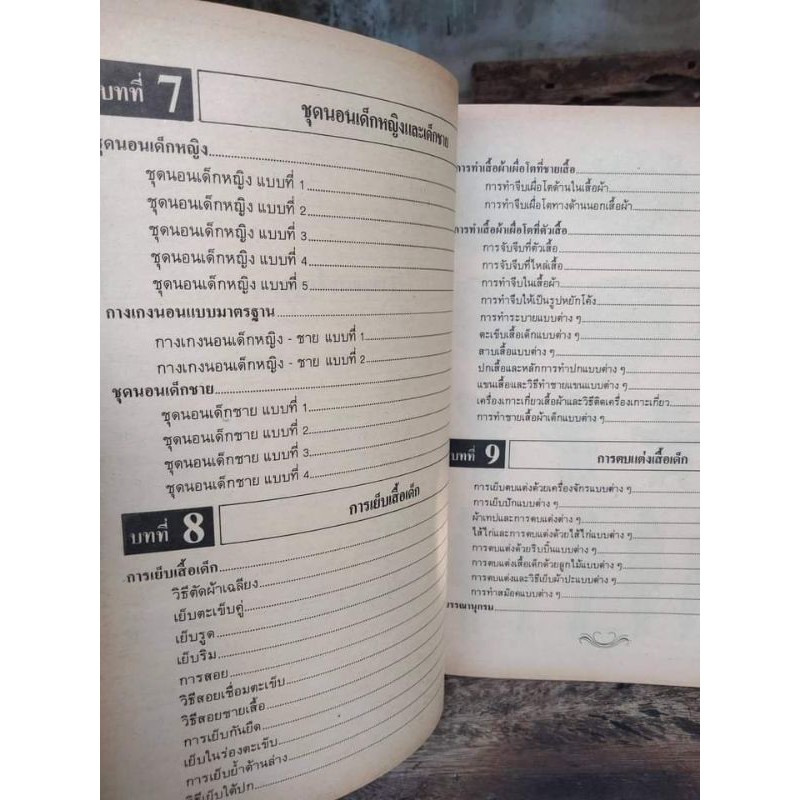 บทที่ 7
ชุดนอนเด็กหญิงและเด็กชาย
ชุดนอนเด็กหญิง
ชุดนอนเด็กหญิง แบบที่ 1
ชุดนอนเด็กหญิง แบบที่ 2
ชุดนอนเด็กหญิง แบบที่ 3
ชุดนอนเด็กหญิง แบบที่ 4
ชุดนอนเด็กหญิง แบบที่ 5
กางเกงนอนแบบมาตรฐาน
กางเกงนอนเด็กหญิง - ชาย แบบที่ 1
กางเกงนอนเด็กหญิง - ชาย แบบที่ 2
ชุดนอนเด็กชาย
ชุดนอนเด็กชาย แบบที่ 1
ชุดนอนเด็กชาย แบบที่ 2
ชุดนอนเด็กชาย แบบที่ 3
ชุดนอนเด็กชาย แบบที่ 4
บทที่ 8
การเย็บเสื้อเด็ก
การเย็บเสื้อเด็ก
วิธีตัดผ้าเฉลียง
เย็บตะเข็บคู่
เย็บรูด
เย็บริม
การสอย
วิธีสอยเชื่อมตะเข็บ
วิธีสอยชายเสื้อ
การเย็บกันยืด
เย็บในร่องตะเข็บ
การเย็บย้ำด้านล่าง
วิธีเย็บใต้ปก
การทำเสื้อผ้าเผื่อโตที่ชายเสื้อ
การทำจีบเผื่อโตด้านในเสื้อผ้า
การทำจีบเผื่อโตทางด้านนอกเสื้อผ้า
การทำเสื้อผ้าเผื่อโตที่ตัวเสื้อ
การจับจีบที่ตัวเสื้อ
การจับจีบที่ไหล่เสื้อ
การทำจีบในเสื้อผ้า
การทำจีบให้เป็นรูปหยักโค้ง
การทำระบายแบบต่าง ๆ
ตะเข็บเสื้อเด็กแบบต่าง ๆ
สาบเสื้อแบบต่าง ๆ
ปกเสื้อและหลักการทำปกแบบต่าง ๆ
แขนเสื้อและวิธีทำชายแขนแบบต่าง ๆ
เครื่องเกาะเกี่ยวเสื้อผ้าและวิธีติดเครื่องเกาะเกี่ยว
การทำชายเสื้อผ้าเด็กแบบต่าง ๆ
บทที่ 9
การตบแต่งเสื้อเด็ก
การเย็บตบแต่งด้วยเครื่องจักรแบบต่าง ๆ
การเย็บปักแบบต่าง ๆ
ผ้าเทปและการตบแต่งต่าง ๆ
ไส้ไก่และการตบแต่งด้วยไส้ไก่แบบต่าง ๆ
การตบแต่งด้วยริบบิ้นแบบต่าง ๆ
การตบแต่งเสื้อเด็กด้วยลูกไม้แบบต่าง ๆ
การตบแต่งและวิธีเย็บผ้าปะแบบต่าง ๆ
การทำสม๊อคแบบต่าง ๆ
บรรณานุกรม